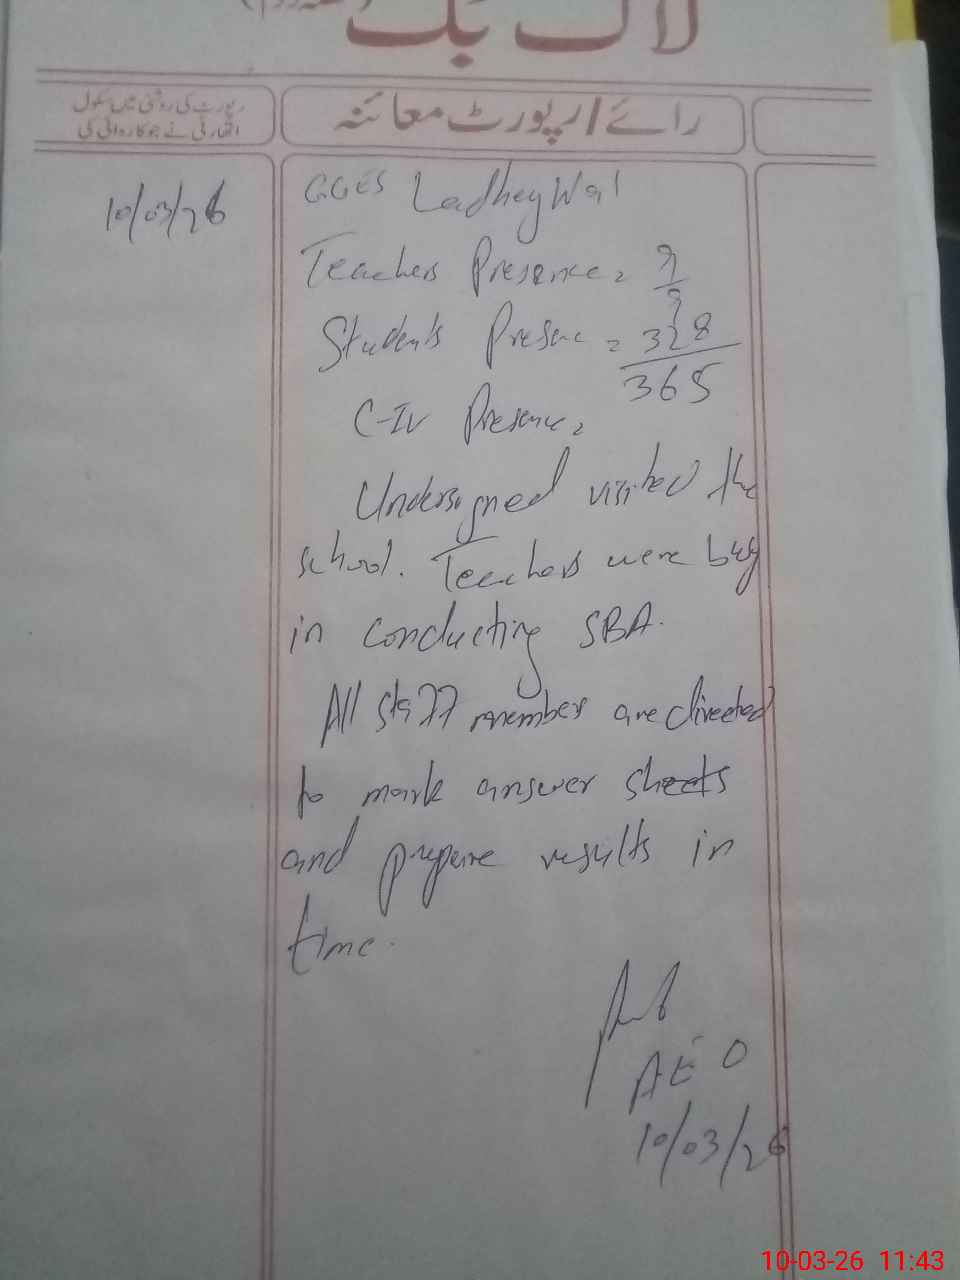 لاگ بک
رپورٹ کی روشنی میں سکول
اتھارٹی نے جو کاروائی کی
رائے/رپورٹ معائنہ
10/03/26
GGES LadheyWal
Teachers Presence = 9/9
Students Presenc = 328/365
C-IV Presence =
Undersigned visited the
school. Teachers were busy
in conducting SBA.
All staff member are directed
to mark answer sheets
and prepare results in
time.
AEO
10/03/26
10-03-26 11:43